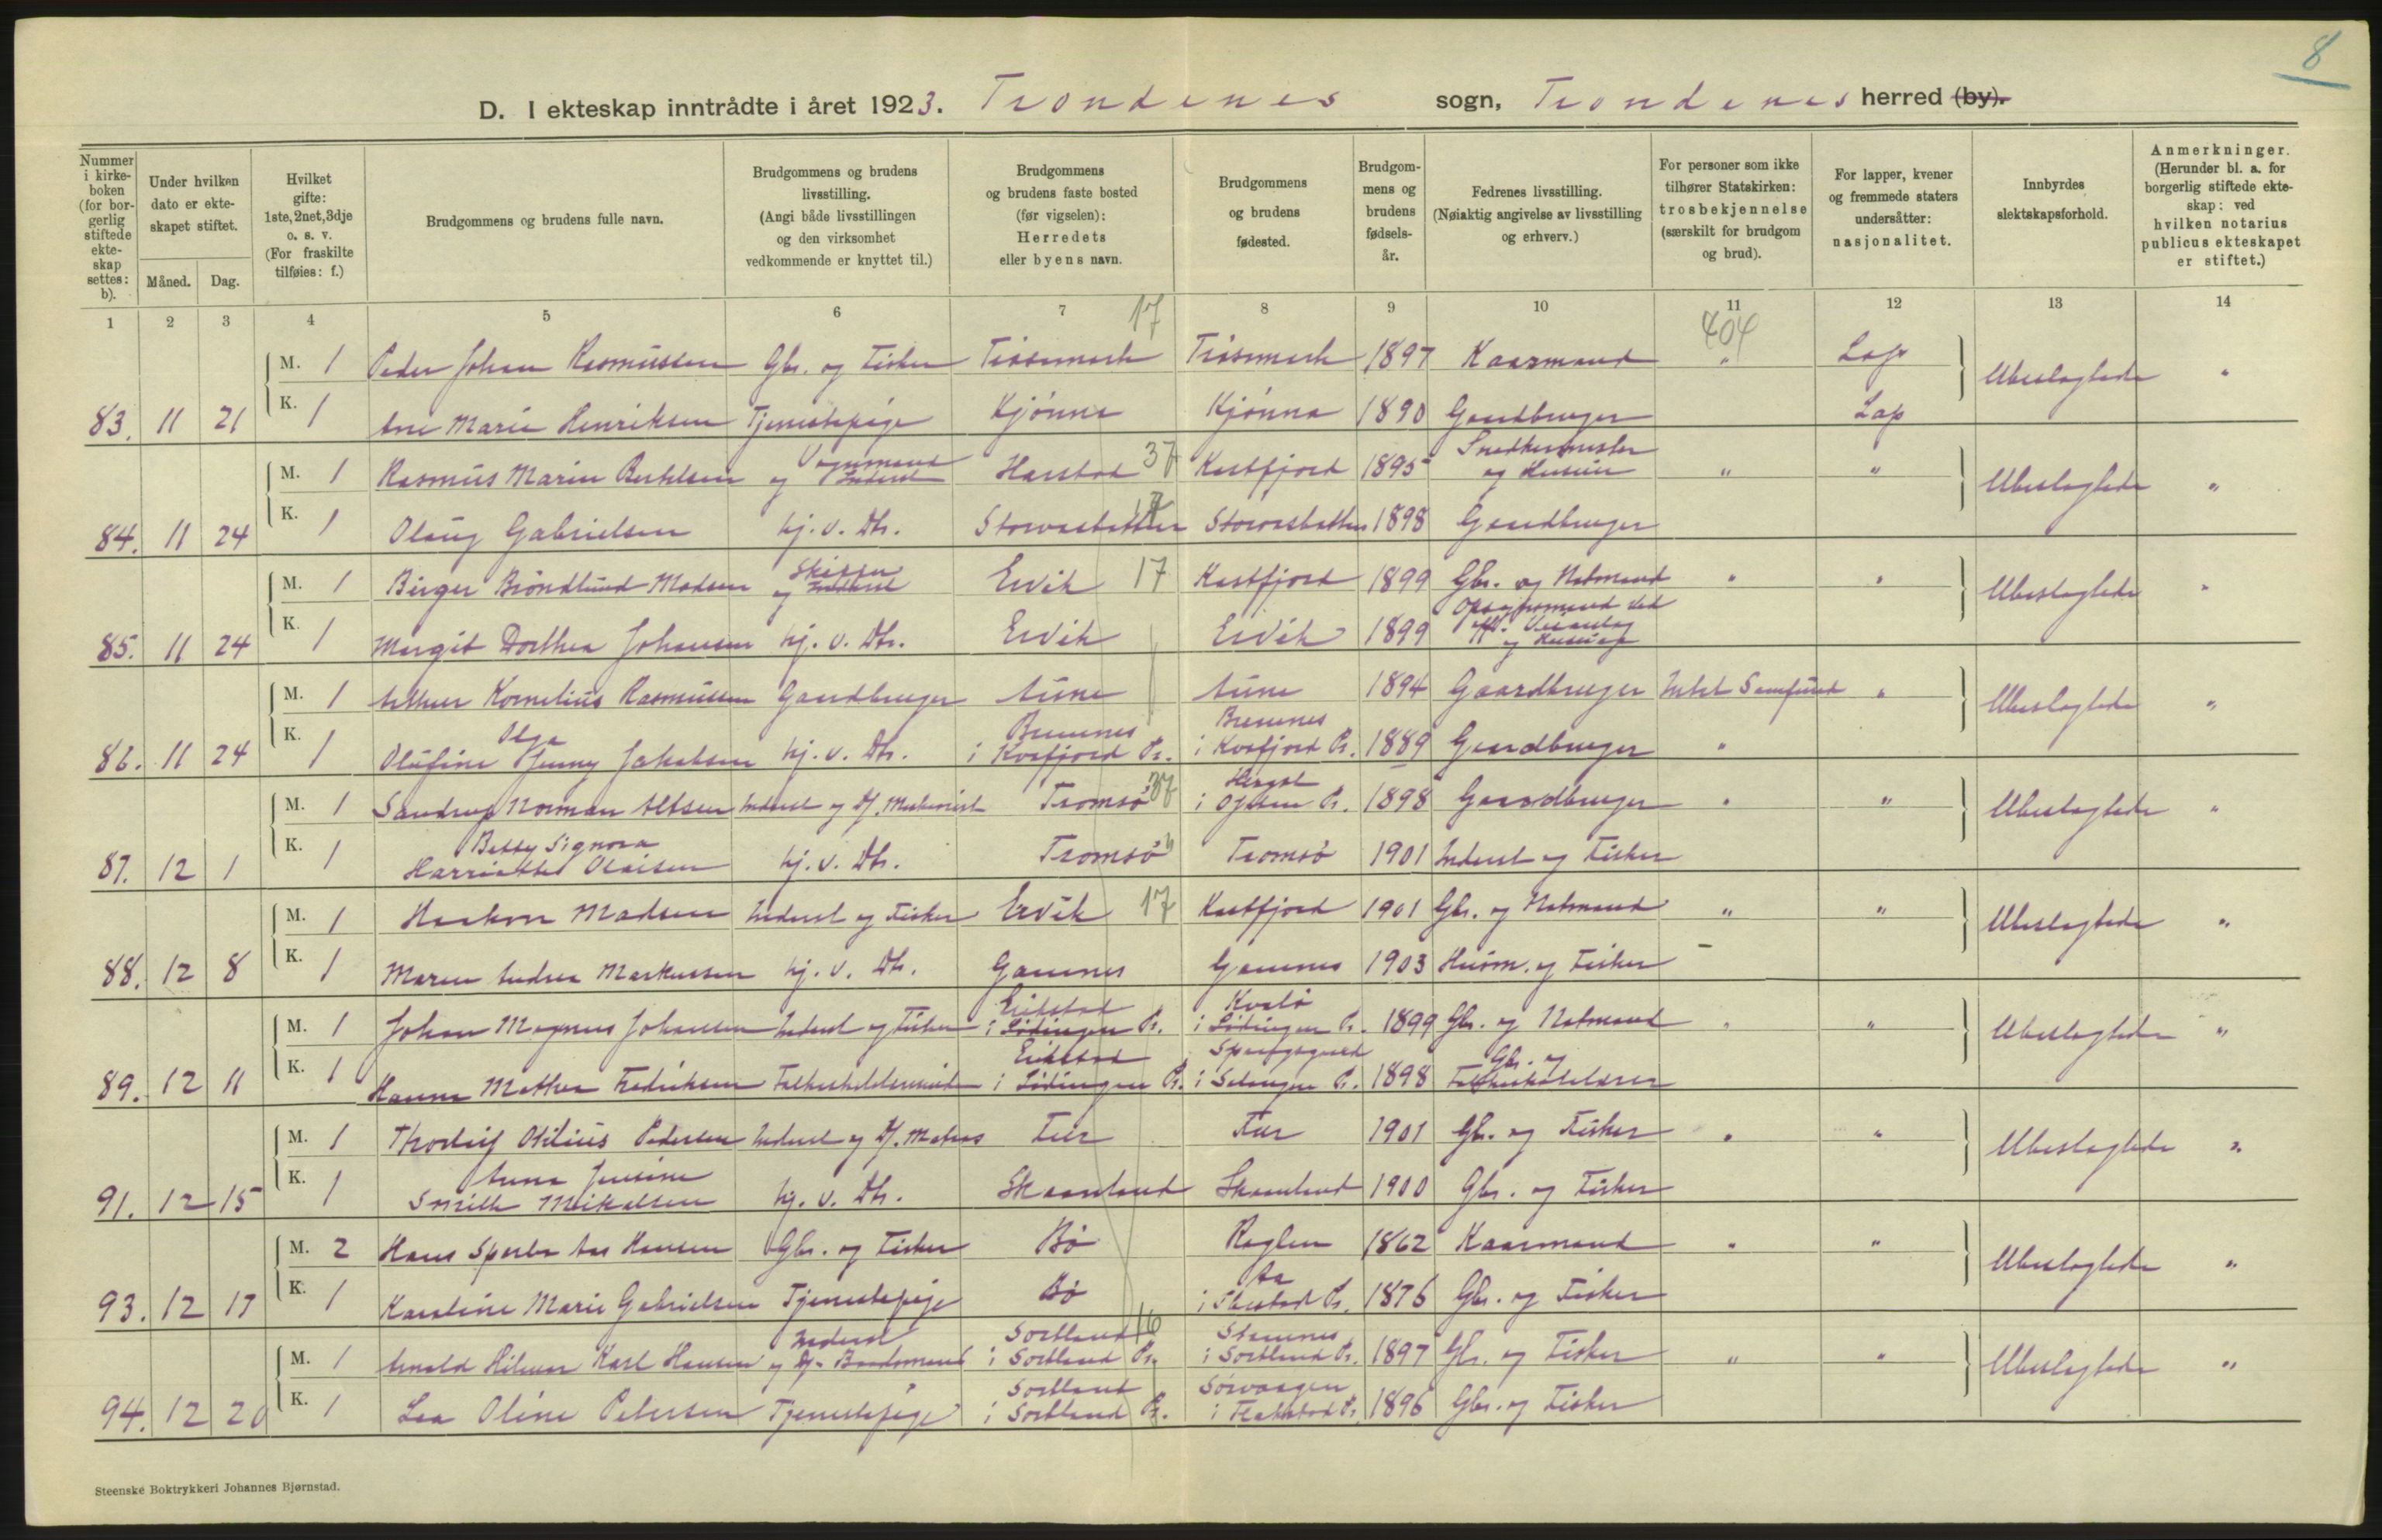 8
D. I ekteskap inntrådte i året 1923. Trondenes sogn, Trondenes herred (by).
Nummer i kirkeboken (for borgerlig stiftede ekteskap settes: b).
Under hvilken dato er ekteskapet stiftet.
Måned.
Dag.
Hvilket gifte: 1ste, 2net, 3dje o. s. v. (For fraskilte tilføies: f.)
Brudgommens og brudens fulle navn.
Brudgommens og brudens livsstilling. (Angi både livsstillingen og den virksomhet vedkommende er knyttet til.)
Brudgommens og brudens faste bosted (før vigselen): Herredets eller byens navn.
Brudgommens og brudens fødested.
Brudgommens og brudens fødselsår.
Fedrenes livsstilling. (Nøiaktig angivelse av livsstilling og erhverv.)
For personer som ikke tilhører Statskirken: trosbekjennelse (særskilt for brudgom og brud).
For lapper, kvener og fremmede staters undersåtter: nasjonalitet.
Innbyrdes slektskapsforhold.
Anmerkninger. (Herunder bl. a. for borgerlig stiftede ekteskap: ved hvilken notarius publicus ekteskapet er stiftet.)
1 2 3 4 5 6 7 8 9 10 11 12 13 14
17 404
M. 1 Peder Johan Rasmussen Gbr. og Fisker 1897 Kaarmand " Lap Ubeslægtede "
83. 11 21 K. 1 Ane Marie Henriksen Tjenestepige Kjønna Kjønna 1890 Gaardbruger Lap
M. 1 Rasmus Marin Bertelsen Vognmand og Inderst Harstad 37 Kastfjord 1895 Snedkermester og Huseier " " Ubeslægtede "
84. 11 24 K. 1 Olaug Gabrielsen hj. v. Dtr. Storvasbotten Storvasbotten 1898 Gaardbruger
M. 1 Birger Brøndlund Madsen Skipper og Inderst Ervik 17 Kastfjord 1899 Gbr. og Notmand " " Ubeslægtede "
85. 11 24 K. 1 Margit Dorthea Johansen hj. v. Dtr. Ervik Ervik 1899 Opsynsmand ved
M. 1 Arthur Kornelius Rasmussen Gaardbruger Aune Aune 1894 Gaardbruger Intet Samfund " Ubeslægtede "
86. 11 24 K. 1 Olufine Olga Jenny Jakobsen hj. v. Dtr. Bremnes i Kvæfjord Pr. Bremnes i Kvæfjord Pr. 1889 Gaardbruger "
M. 1 Norman Inderst og Tromsø 37 i Pr. 1898 Gaardbruger " " Ubeslægtede "
87. 12 1 K. 1 Betsy Signora Harriette Olaisen hj. v. Dtr. Tromsø Tromsø 1901 Inderst og Fisker
M. 1 Haakon Madsen Inderst og Fisker Ervik 17 Kastfjord 1901 Gbr. og Notmand " " Ubeslægtede "
88. 12 8 K. 1 Maren Andrea Markussen hj. v. Dtr. Gamnes Gamnes 1903 Husm. og Fisker
M. 1 Johan Magnus Johansen Inderst og Fisker Erikstad i Lødingen Pr. Kvalø i Lødingen Pr. 1899 Gbr. og Notmand " " Ubeslægtede "
89. 12 11 K. 1 Hanna Mathea Fredriksen Erikstad i Lødingen Pr. i Salangen Pr. 1898 Gbr. og Folkeskolelærer
M. 1 Thorleif Otilius Pedersen Inderst og Df. Matros 1901 Gbr. og Fisker " " Ubeslægtede "
91. 12 15 K. 1 Anna Jensine Mikalsen hj. v. Dtr. Skaanland Skaanland 1900 Gbr. og Fisker
M. 2 Hans Hansen Gbr. og Fisker Bø 1862 Kaarmand " " Ubeslægtede "
93. 12 17 K. 1 Karoline Marie Gabrielsen Tjenestepige Bø Aa i Ibestad Pr. 1876 Gbr. og Fisker
M. 1 Arnold Hilmar Karl Hansen Inderst og Df. Baadsmand Sortland i Sortland Pr. 16 Stamnes i Sortland Pr. 1897 Gbr. og Fisker " " Ubeslægtede "
94. 12 20 K. 1 Oline Petersen Tjenestepige Sortland i Sortland Pr. Sørvaagen i Flakstad Pr. 1896 Gbr. og Fisker
Steenske Boktrykkeri Johannes Bjørnstad.